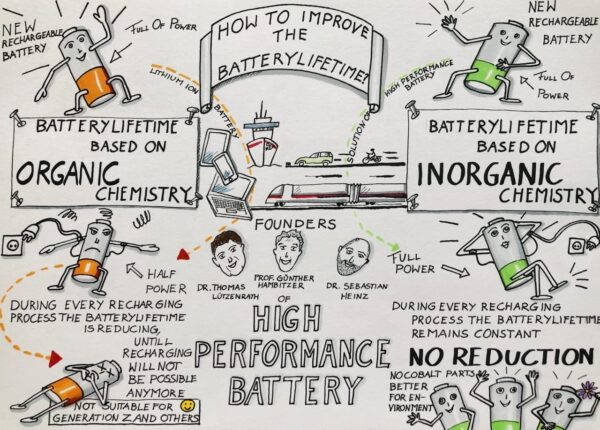 HOW TO IMPROVE
THE
BATTERYLIFETIME?
NEW
RECHARGEABLE
BATTERY
FULL OF POWER
LITHIUM ION
BATTERY
BATTERYLIFETIME
BASED ON
ORGANIC
CHEMISTRY
HALF
POWER
DURING EVERY RECHARGING
PROCESS THE BATTERYLIFETIME
IS REDUCING,
UNTILL
RECHARGING
WILL NOT
BE POSSIBLE
ANYMORE
NOT SUITABLE FOR
GENERATION Z AND OTHERS
FOUNDERS
DR. THOMAS
LÜTZENRATH
PROF. GÜNTHER
HAMBITZER
DR. SEBASTIAN
HEINZ
OF
HIGH
PERFORMANCE
BATTERY
NEW
RECHARGEABLE
BATTERY
FULL OF
POWER
HIGH PERFORMANCE
BATTERY
SOLUTION OF
BATTERYLIFETIME
BASED ON
INORGANIC
CHEMISTRY
FULL
POWER
DURING EVERY RECHARGING
PROCESS THE BATTERYLIFETIME
REMAINS CONSTANT
NO REDUCTION
NO COBALT PARTS
BETTER
FOR EN-
VIRONMENT